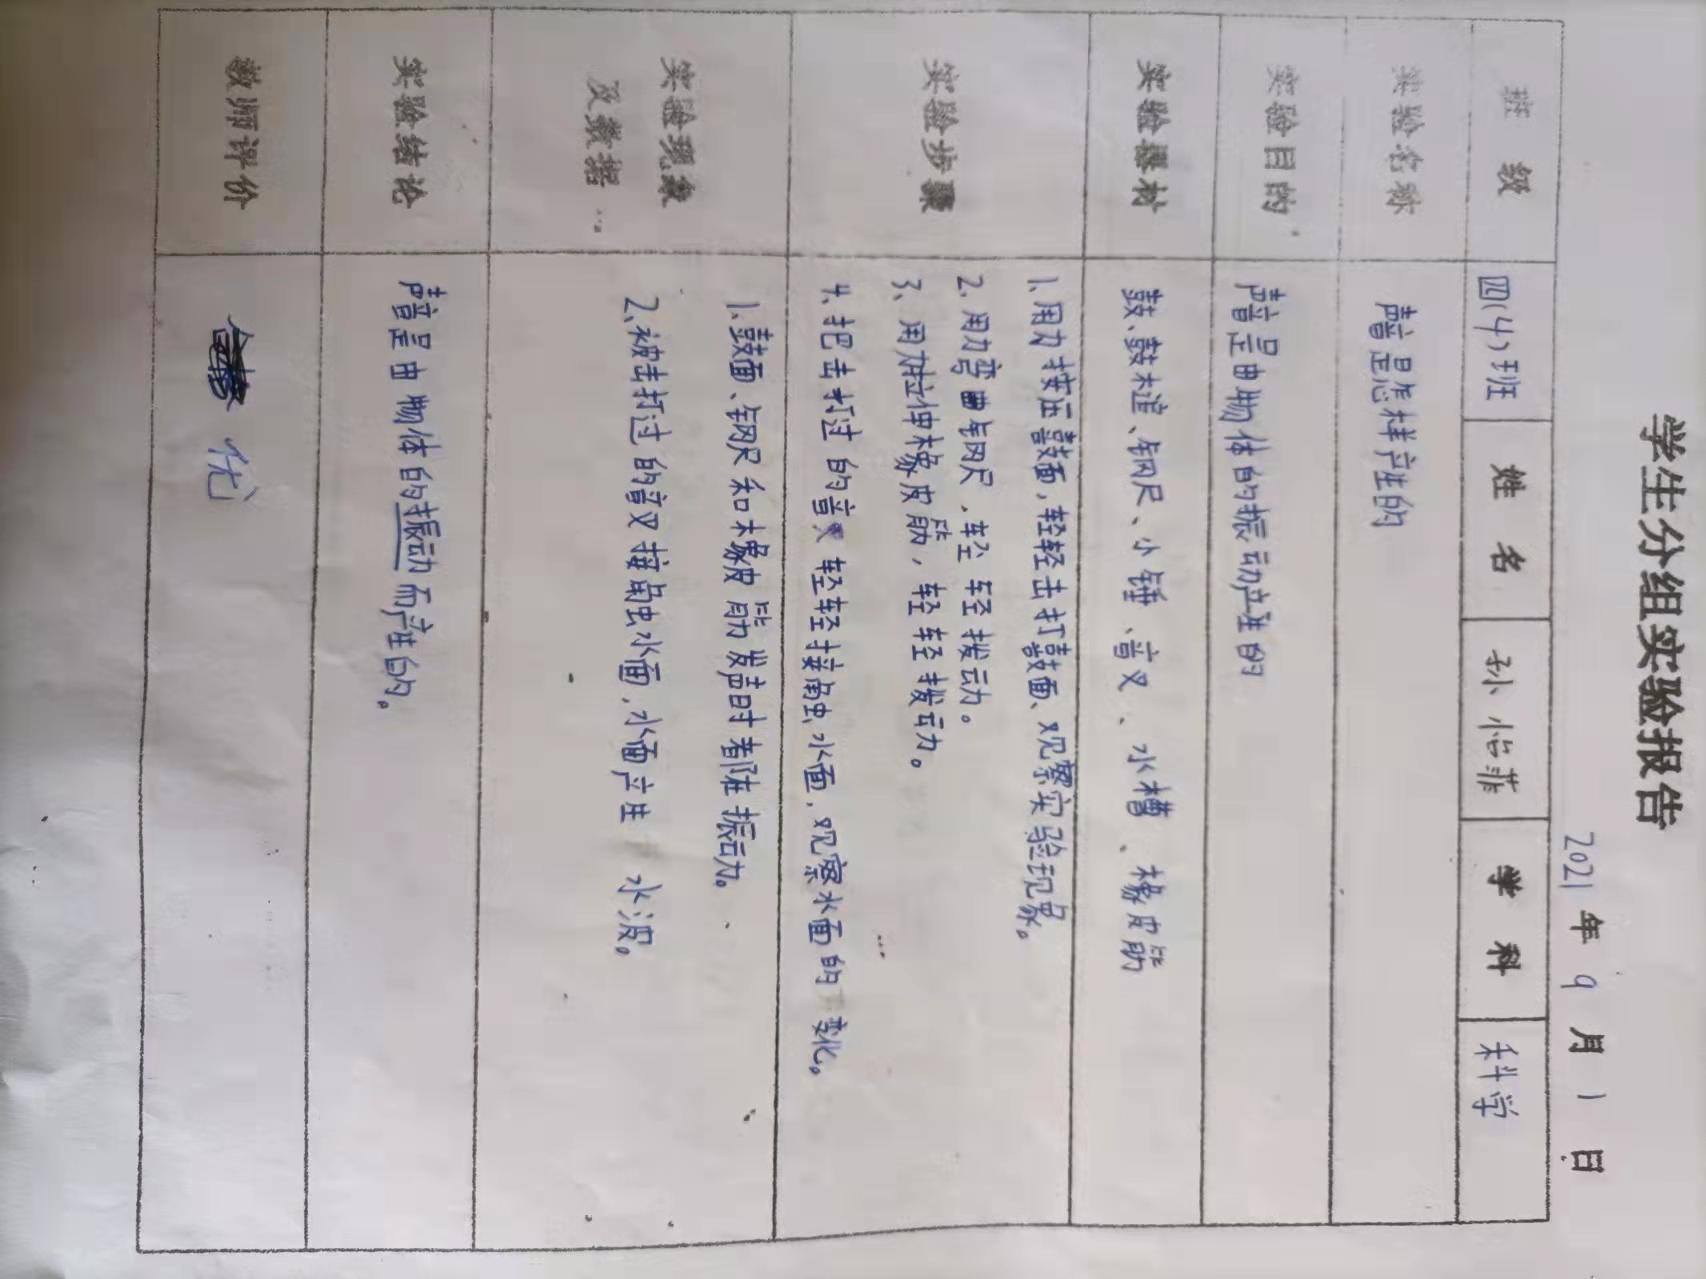 学生分组实验报告
2021年9月1日
班级 四(4)班 姓名 孙怡菲 学科 科学
实验名称 声音是怎样产生的
实验目的 声音是由物体的振动产生的
实验器材 鼓、鼓槌、钢尺、小锤、音叉、水槽、橡皮筋
实验步骤
1、用力按压鼓面,轻轻击打鼓面、观察实验现象。
2、用力弯曲钢尺,轻轻拨动。
3、用力拉伸橡皮筋,轻轻拨动。
4、把击打过的音叉轻轻接触水面,观察水面的变化。
实验现象
及数据
1、鼓面、钢尺和橡皮筋发声时都在振动。
2、被击打过的音叉接触水面,水面产生水波。
实验结论 声音是由物体的振动而产生的。
教师评价 优